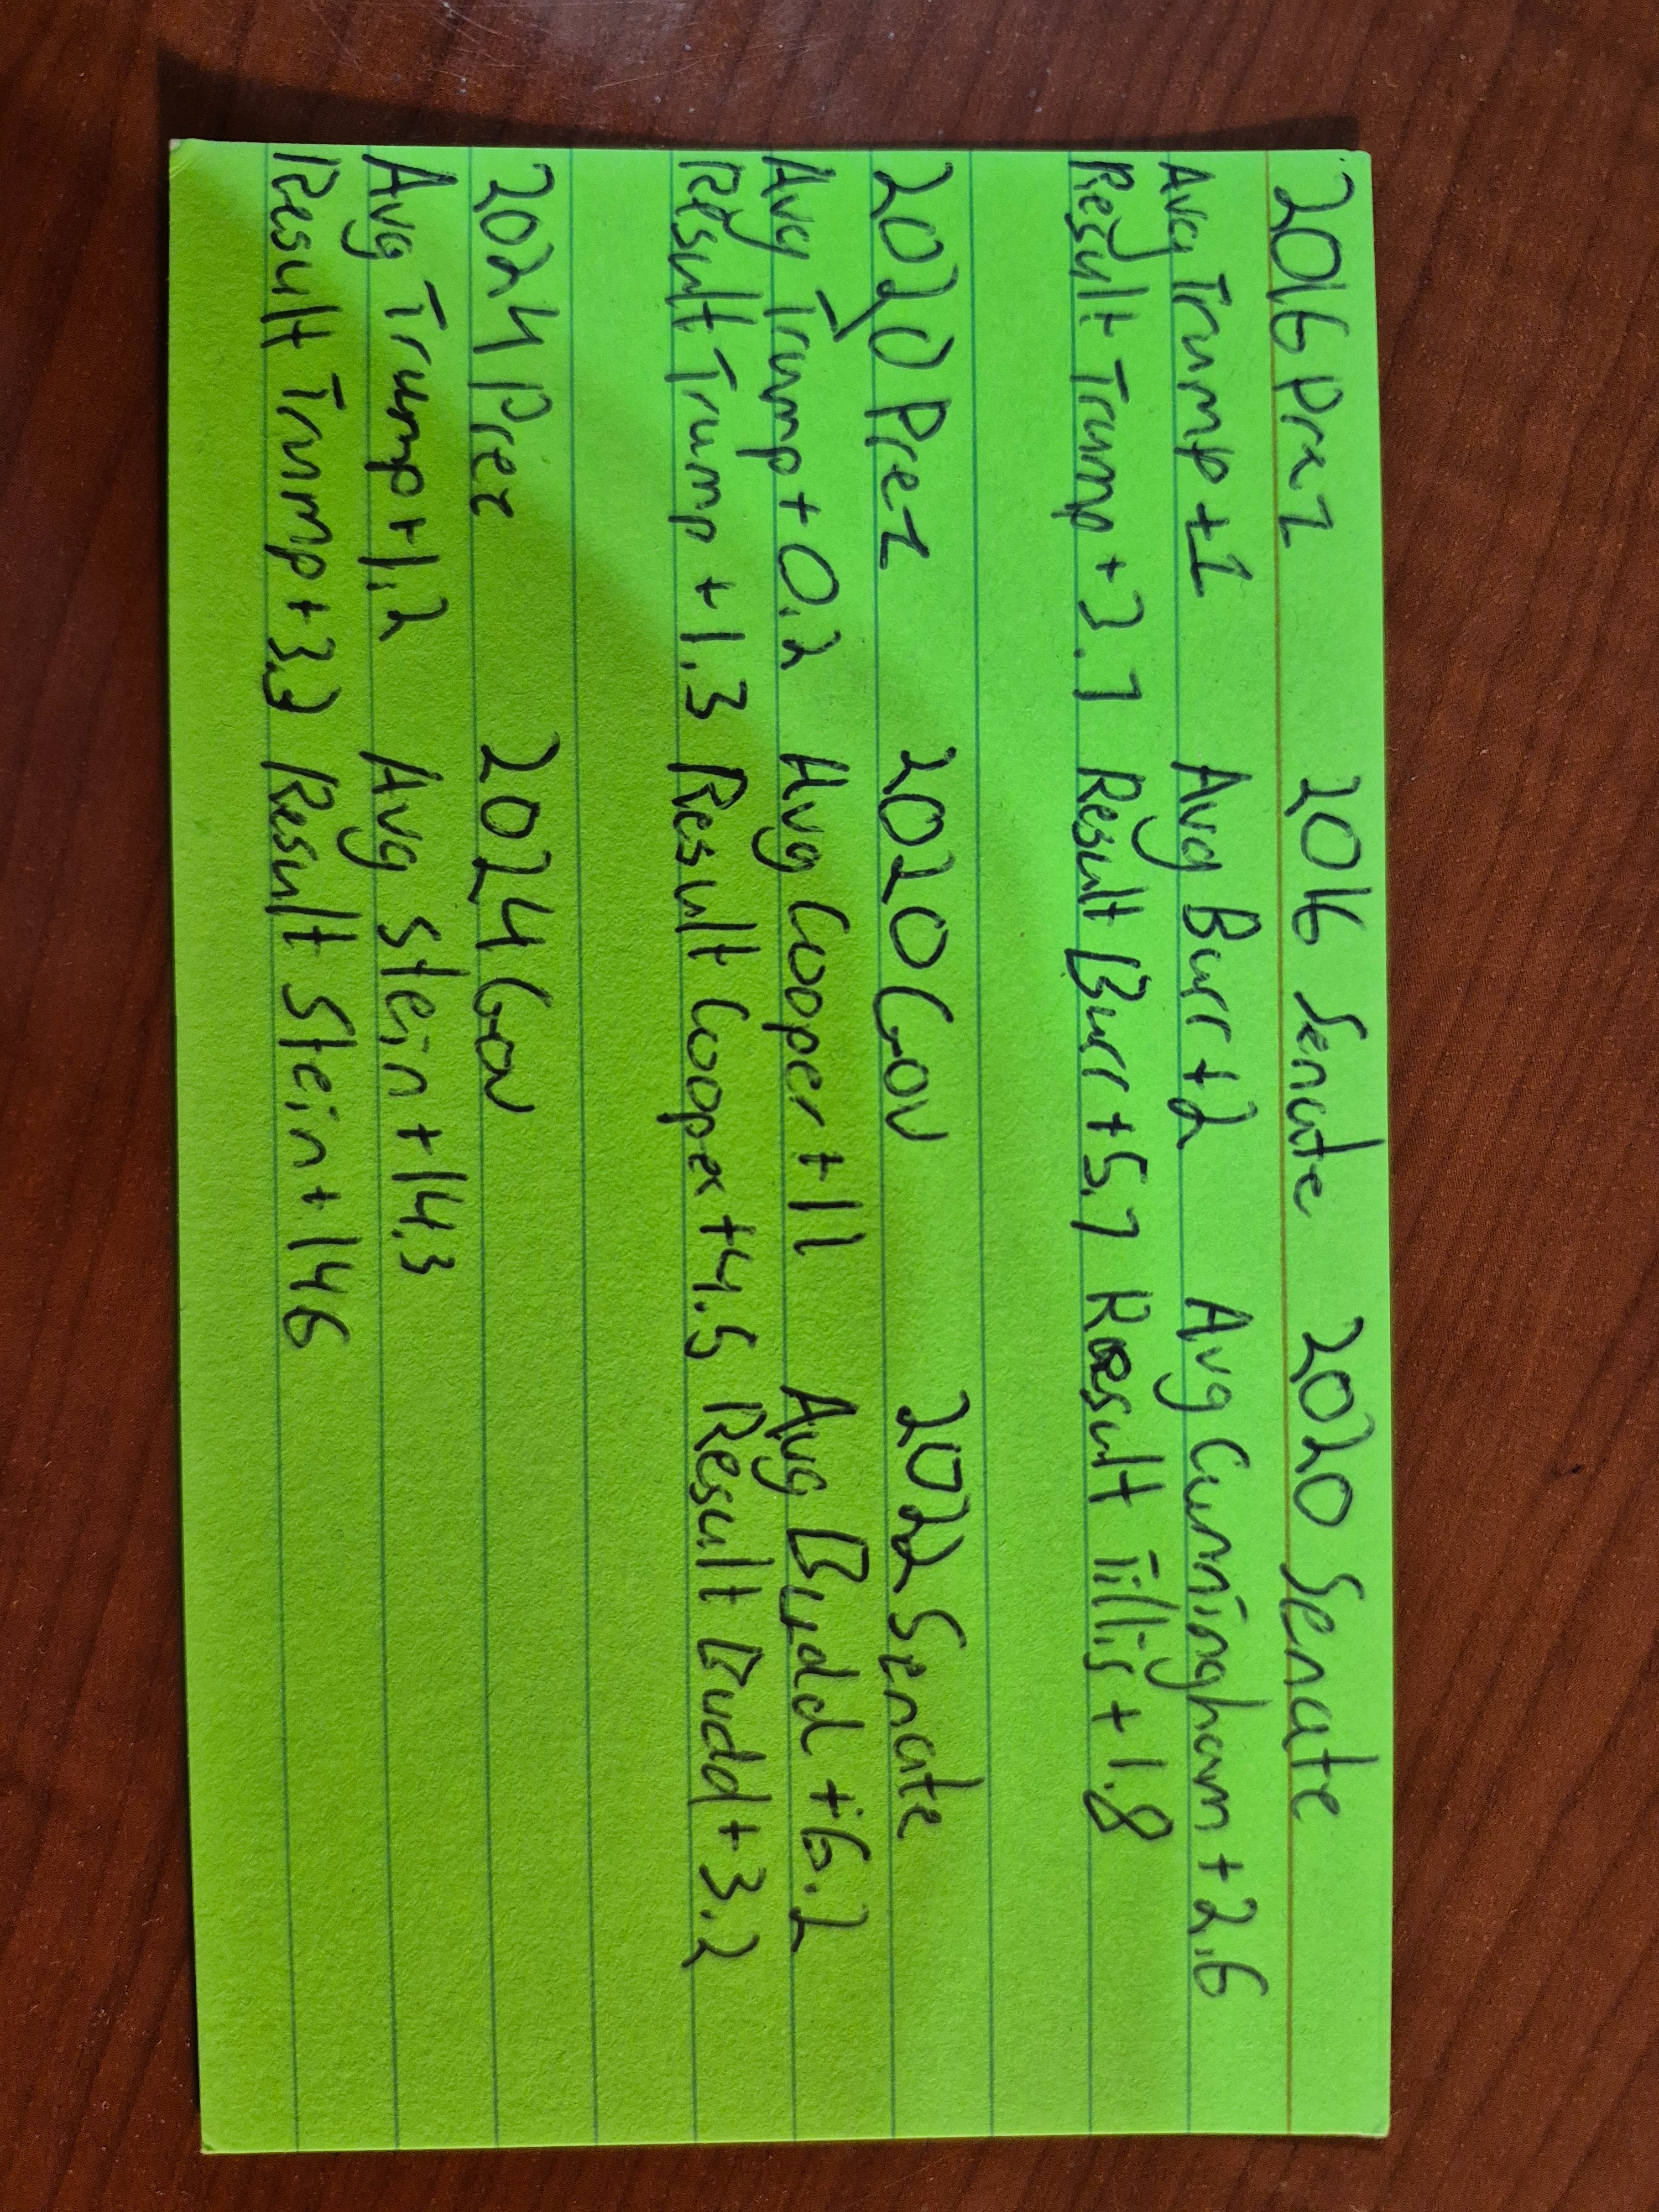 2016 Prez 2016 Senate 2020 Senate
Avg Trump +1 Avg Burr +2 Avg Cunningham +2.6
Result Trump +3.7 Result Burr +5.7 Result Tillis +1.8
2020 Prez 2020 Gov 2022 Senate
Avg Trump +0.2 Avg Cooper +11 Avg Budd +6.2
Result Trump +1.3 Result Cooper +4.5 Result Budd +3.2
2024 Prez 2024 Gov
Avg Trump +1.2 Avg Stein +14.3
Result Trump +3.3 Result Stein +14.6